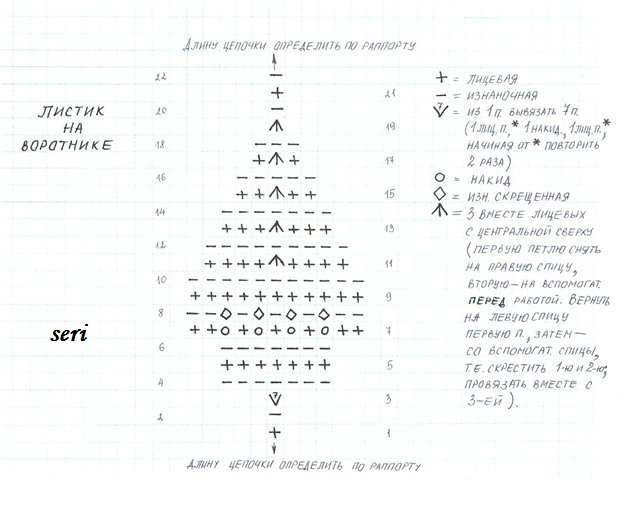 ДЛИНУ ЦЕПОЧКИ ОПРЕДЕЛИТЬ ПО РАППОРТУ
ЛИСТИК
НА
ВОРОТНИКЕ
22
21
20
19
18
17
16
15
14
13
12
11
10
9
8
7
6
5
4
3
2
1
seri
ДЛИНУ ЦЕПОЧКИ ОПРЕДЕЛИТЬ ПО РАППОРТУ
+ = ЛИЦЕВАЯ
– = ИЗНАНОЧНАЯ
7 = ИЗ 1 П. ВЫВЯЗАТЬ 7 П.
(1 ЛИЦ. П., * 1 НАКИД., 1 ЛИЦ. П., *
НАЧИНАЯ ОТ * ПОВТОРИТЬ
2 РАЗА)
О = НАКИД
◇ = ИЗН. СКРЕЩЕННАЯ
= 3 ВМЕСТЕ ЛИЦЕВЫХ
С ЦЕНТРАЛЬНОЙ СВЕРХУ
(ПЕРВУЮ ПЕТЛЮ СНЯТЬ
НА ПРАВУЮ СПИЦУ,
ВТОРУЮ – НА ВСПОМОГАТ.
ПЕРЕД РАБОТОЙ. ВЕРНУТЬ
НА ЛЕВУЮ СПИЦУ
ПЕРВУЮ П., ЗАТЕМ –
СО ВСПОМОГАТ. СПИЦЫ,
Т.Е. СКРЕСТИТЬ 1-Ю И 2-Ю;
ПРОВЯЗАТЬ ВМЕСТЕ С
3-ЕЙ).